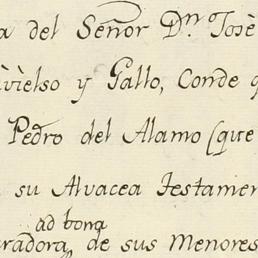 a del Señor Dⁿ Josè
ivièlso y Gallo, Conde q
Pedro del Alamo (que
su Alvacea testamen
ad bona
radora, de sus Menores